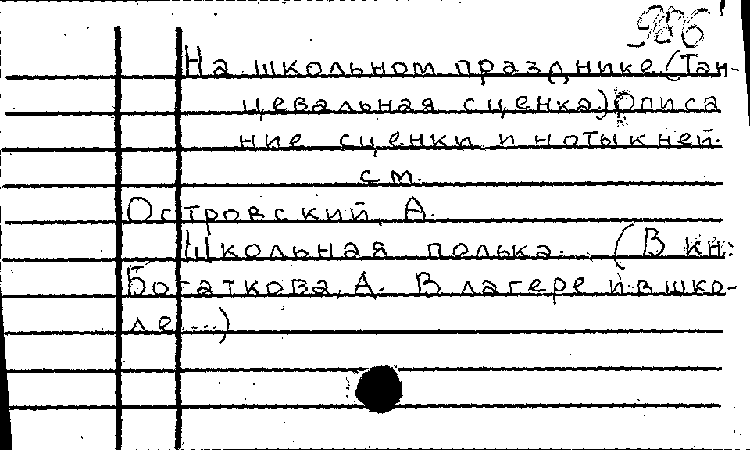 986
На школьном празднике (Тан-
цевальная сценка) Описа
ние сценки и ноты к ней
см.
Островский, А.
Школьная полька. (В кн:
Богаткова, А. В лагере и в шко-
ле...)